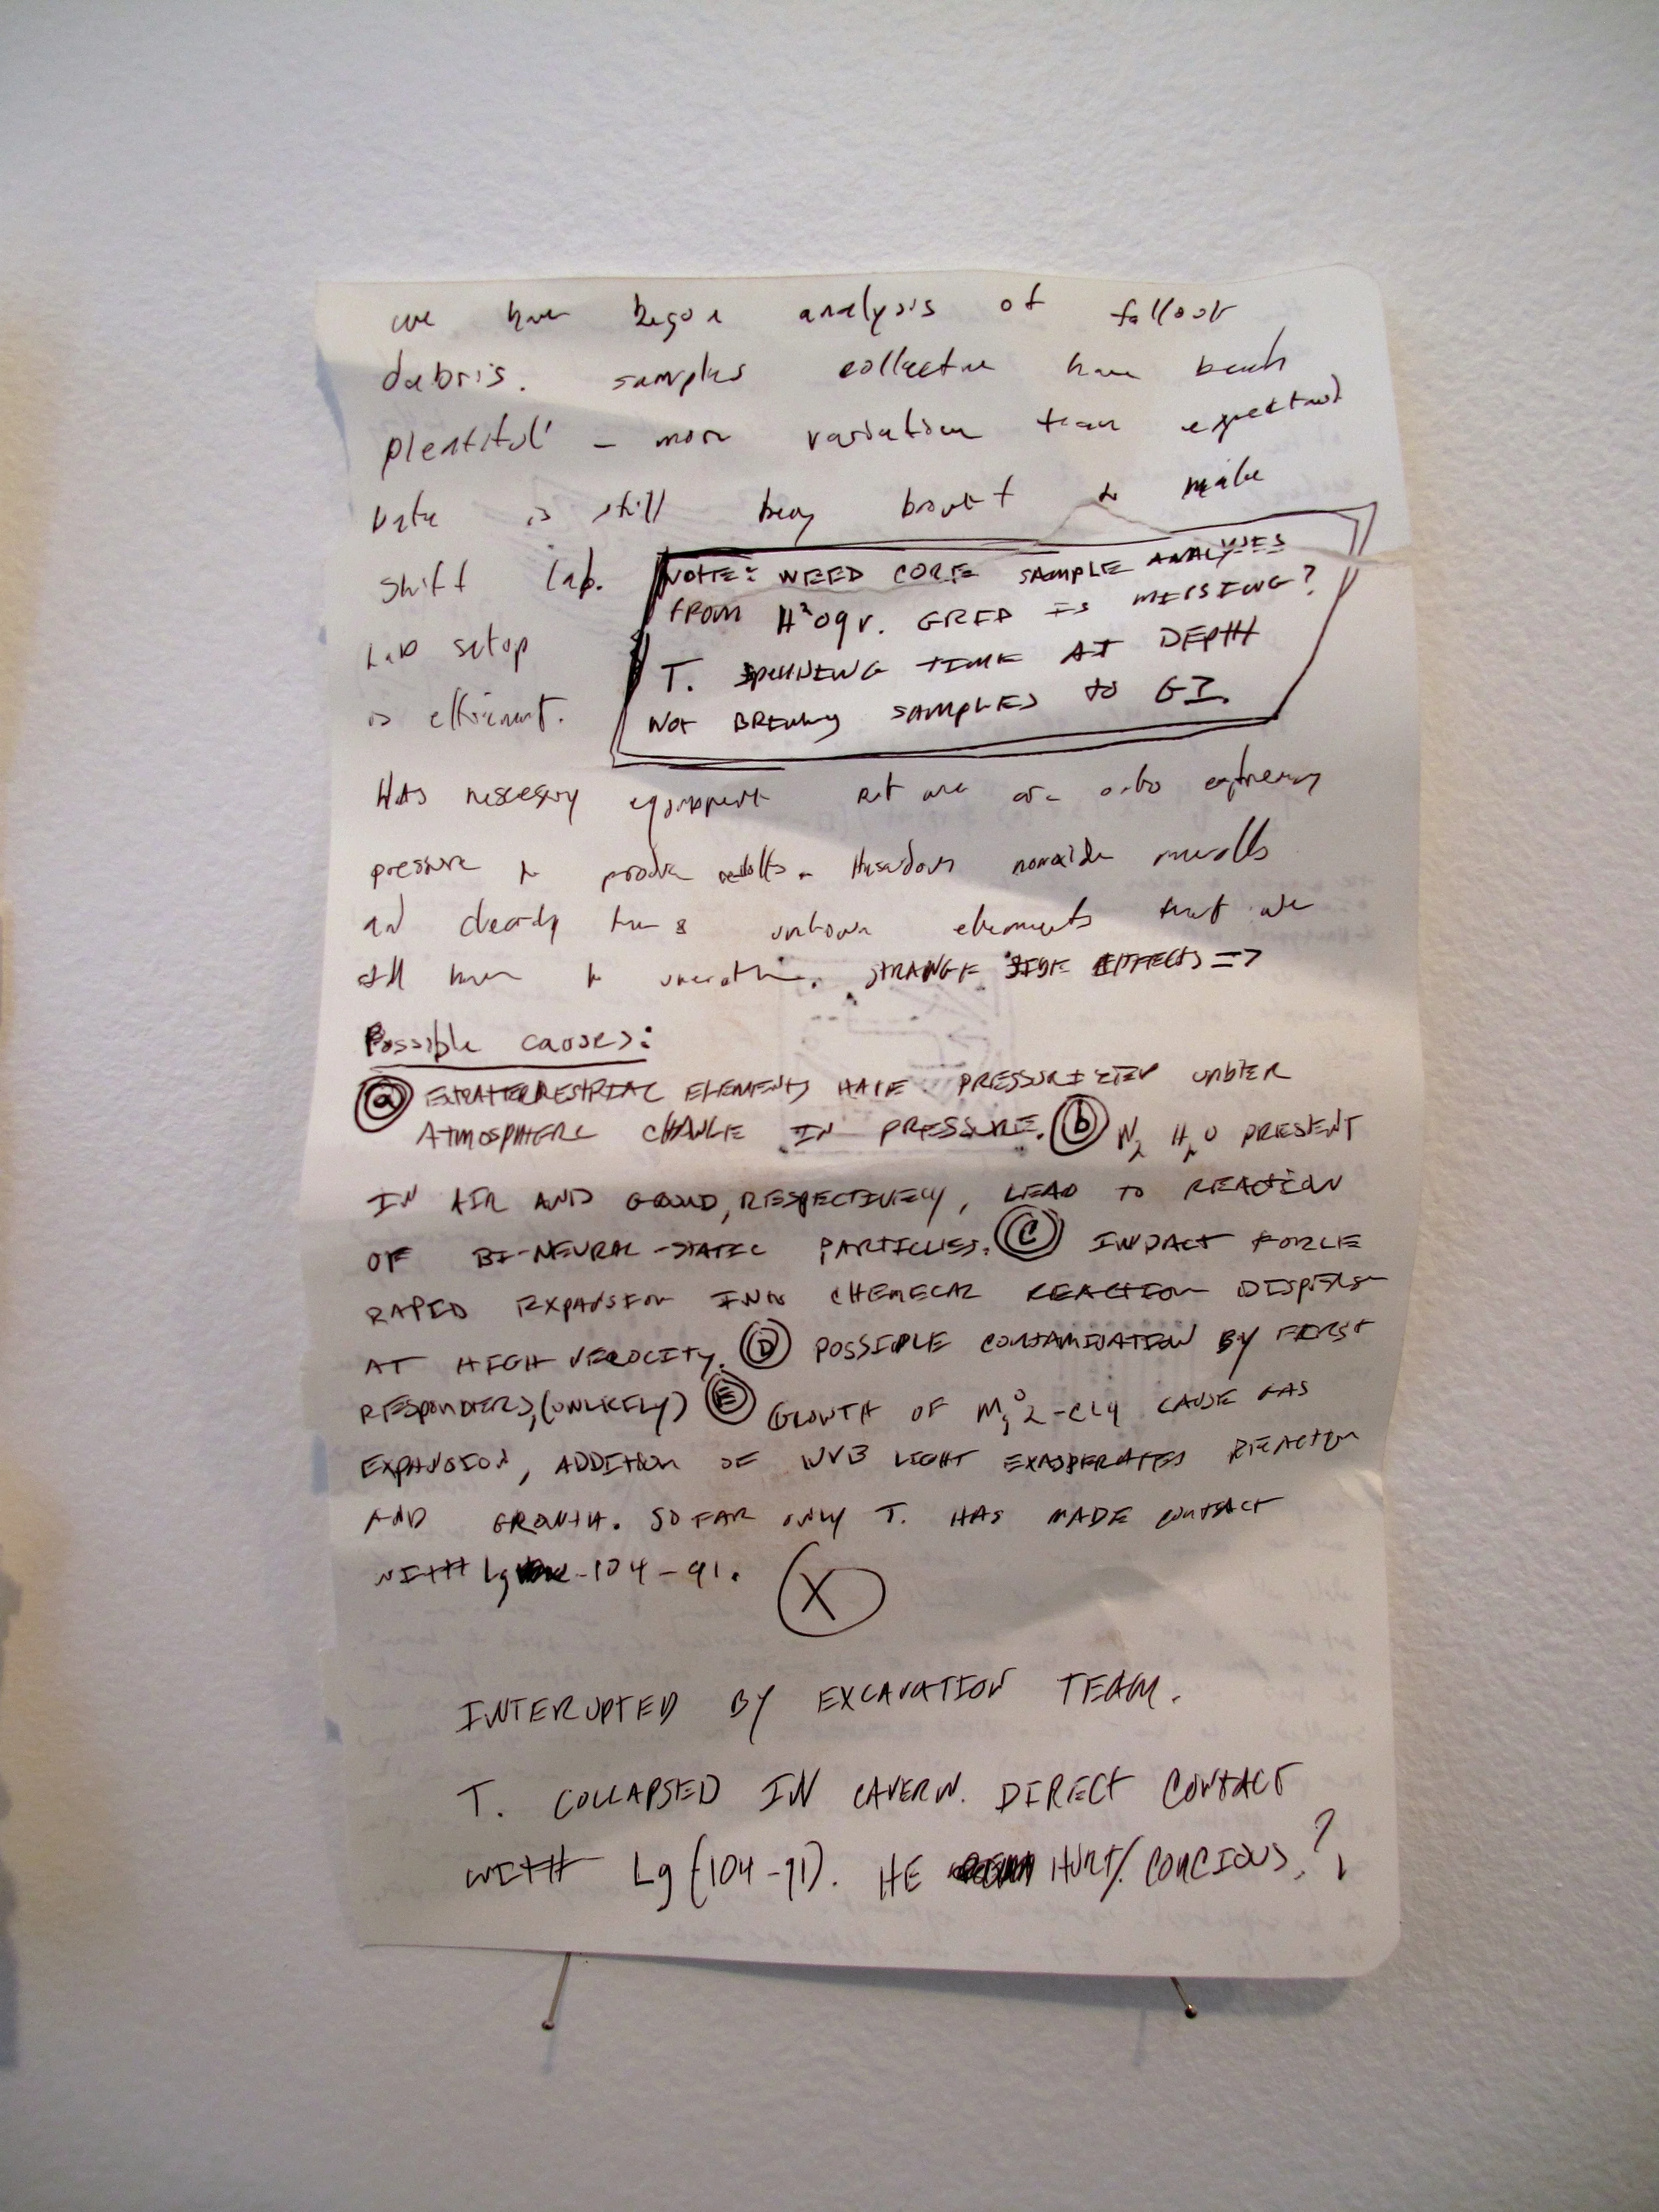 we have begun analysis of fallout
debris. samples collected have been
plentiful - more variation than expected
Data is still being brought to make
shift lab.
Lab setup
is efficient.
NOTE: NEED CORE SAMPLE ANALYSES
FROM H²O9V. GRID IS MISSING?
T. SPENDING TIME AT DEPTH
NOT BRINGING SAMPLES TO GI.
Has necessary equipment but we are under
pressure to produce results. Hazardous monoxide
and clearly unknown elements that we
still have to STRANGE SIDE EFFECTS =>
Possible causes:
(a) EXTRATERRESTRIAL ELEMENTS HAVE PRESSURIZED UNDER
ATMOSPHERIC CHANGE IN PRESSURE. (b) N2 H2O PRESENT
IN AIR AND GROUND, RESPECTIVELY, LEAD TO REACTION
OF BI-NEURAL-STATIC PARTICLES. (C) IMPACT FORCE
RAPID EXPANSION INTO CHEMICAL REACTION DISPERSE
AT HIGH VELOCITY. (D) POSSIBLE CONTAMINATION BY FIRST
RESPONDERS, (UNLIKELY) (E) GROWTH OF CAUSE GAS
EXPANSION, ADDITION OF UVB LIGHT EXASPERATES REACTION
AND GROWTH. SO FAR ONLY T. HAS MADE CONTACT
WITH Lg -104-91.
X
INTERUPTED BY EXCAVATION TEAM.
T. COLLAPSED IN CAVERN. DIRECT CONTACT
WITH Lg (104-91). HE HURT/CONCIOUS?